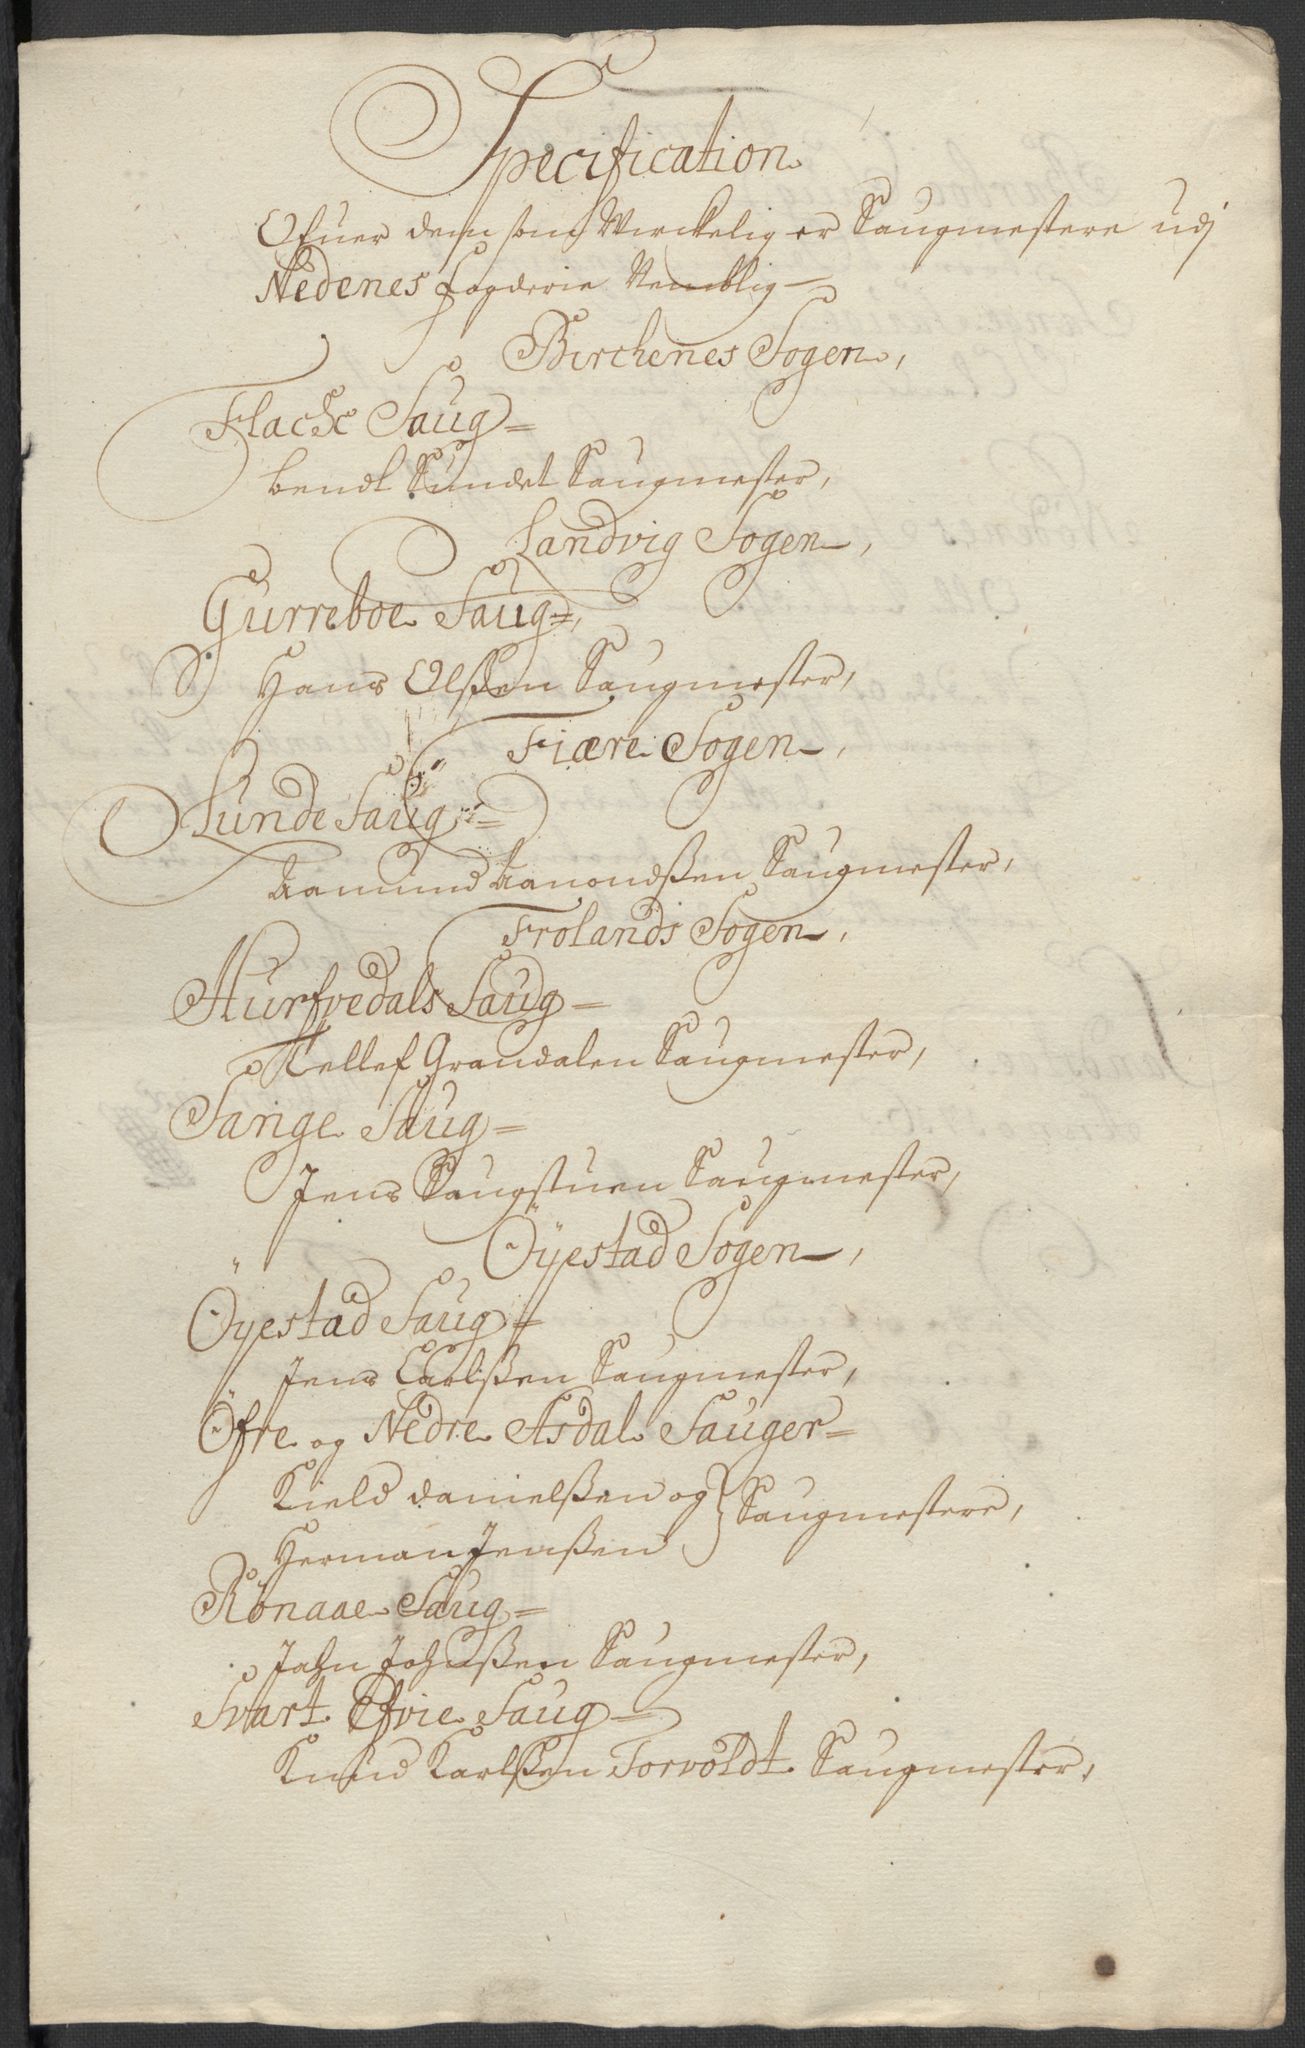 Specification
Ofuer dem som Wirckelig er Saugmestere udj
Nedenes fogderie Nemblig
Birchenes Sogen,
Flache Saug=
bendt Sundet Saugmester,
Landvig Sogen,
Gurreboe Saug=,
Hans Olssen Saugmester,
Fiære Sogen,
Lunde Saug=
Aamund Aanondßen Saugmester,
Frolands Sogen,
Hurfvedals Saug=
Tellef Grandalen Saugmester,
Sange Saug=
Jens Saugstuen Saugmester,
Öyestad Sogen,
Öyestad Saug=
Jens Carlßen Saugmester,
Öfre og Nedre Asdal Sauger=
Kield danielßen og } Saugmestere,
Herman Jenßen
Rönaae Saug=
Jahn Johnßen Saugmester,
Svart Saug=
Knud Karlßen Torvoldt Saugmester,